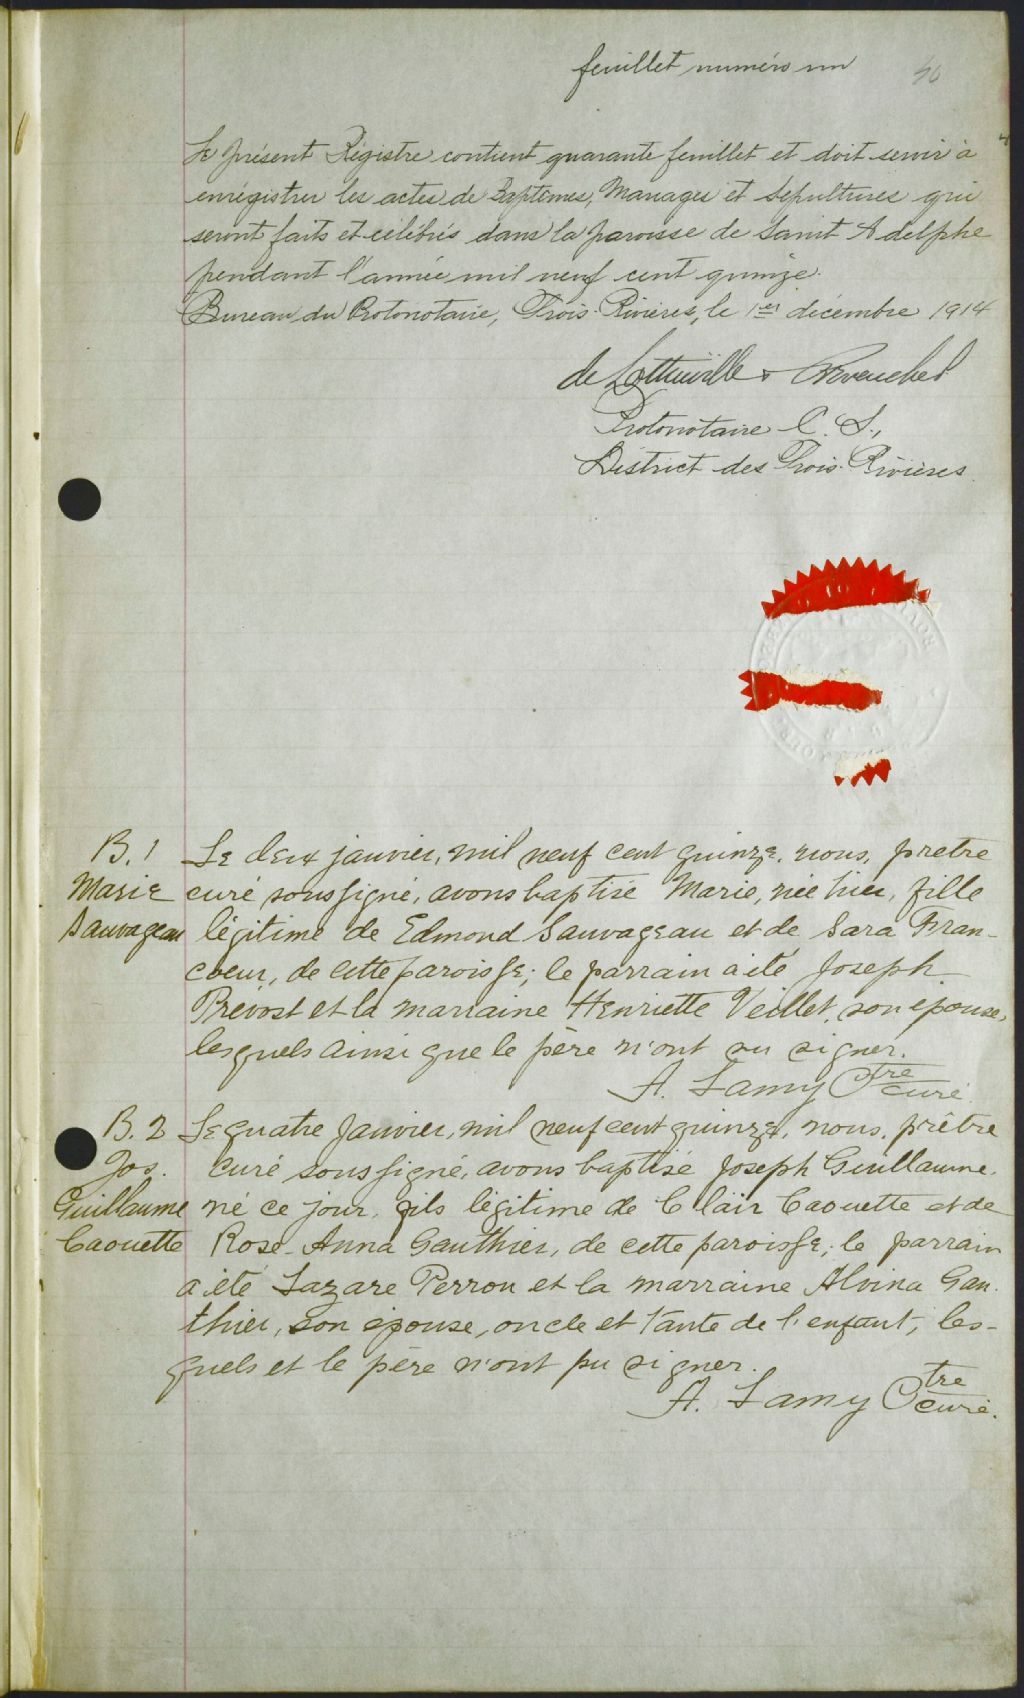 feuillet numéro un
40
Le présent Régistre contient quarante feuillet et doit servir à
enrégistrer les actes de Baptêmes, Mariages et Sépultures qui
seront faits et célébrés dans la paroisse de Saint Adelphe
pendant l'année mil neuf cent quinze.
Bureau du Protonotaire, Trois-Rivières, le 1er décembre 1914
de Lottinville &
Protonotaire C. S.,
District des Trois-Rivières.
B. 1
Marie
Sauvageau
Le deux janvier, mil neuf cent quinze, nous, pretre
curé soussigné, avons baptisé Marie, née hier, fille
légitime de Edmond Sauvageau et de Sara Fran-
coeur, de cette paroisse; le parrain a été Joseph
Prévost et la marraine Henriette Veillet, son épouse,
lesquels ainsi que le père n'ont su signer.
A. Lamy Ptre
curé.
B. 2
Jos.
Guillaume
Caouette
Le quatre Janvier, mil neuf cent quinze, nous, prêtre
curé soussigné, avons baptisé Joseph Guillaume,
né ce jour, fils légitime de Clair Caouette et de
Rose-Anna Gauthier, de cette paroisse; le parrain
a été Lazare Perron et la marraine Alvina Gau-
thier, son épouse, oncle et tante de l'enfant, les-
quels et le père n'ont pu signer.
A. Lamy Ptre
curé.